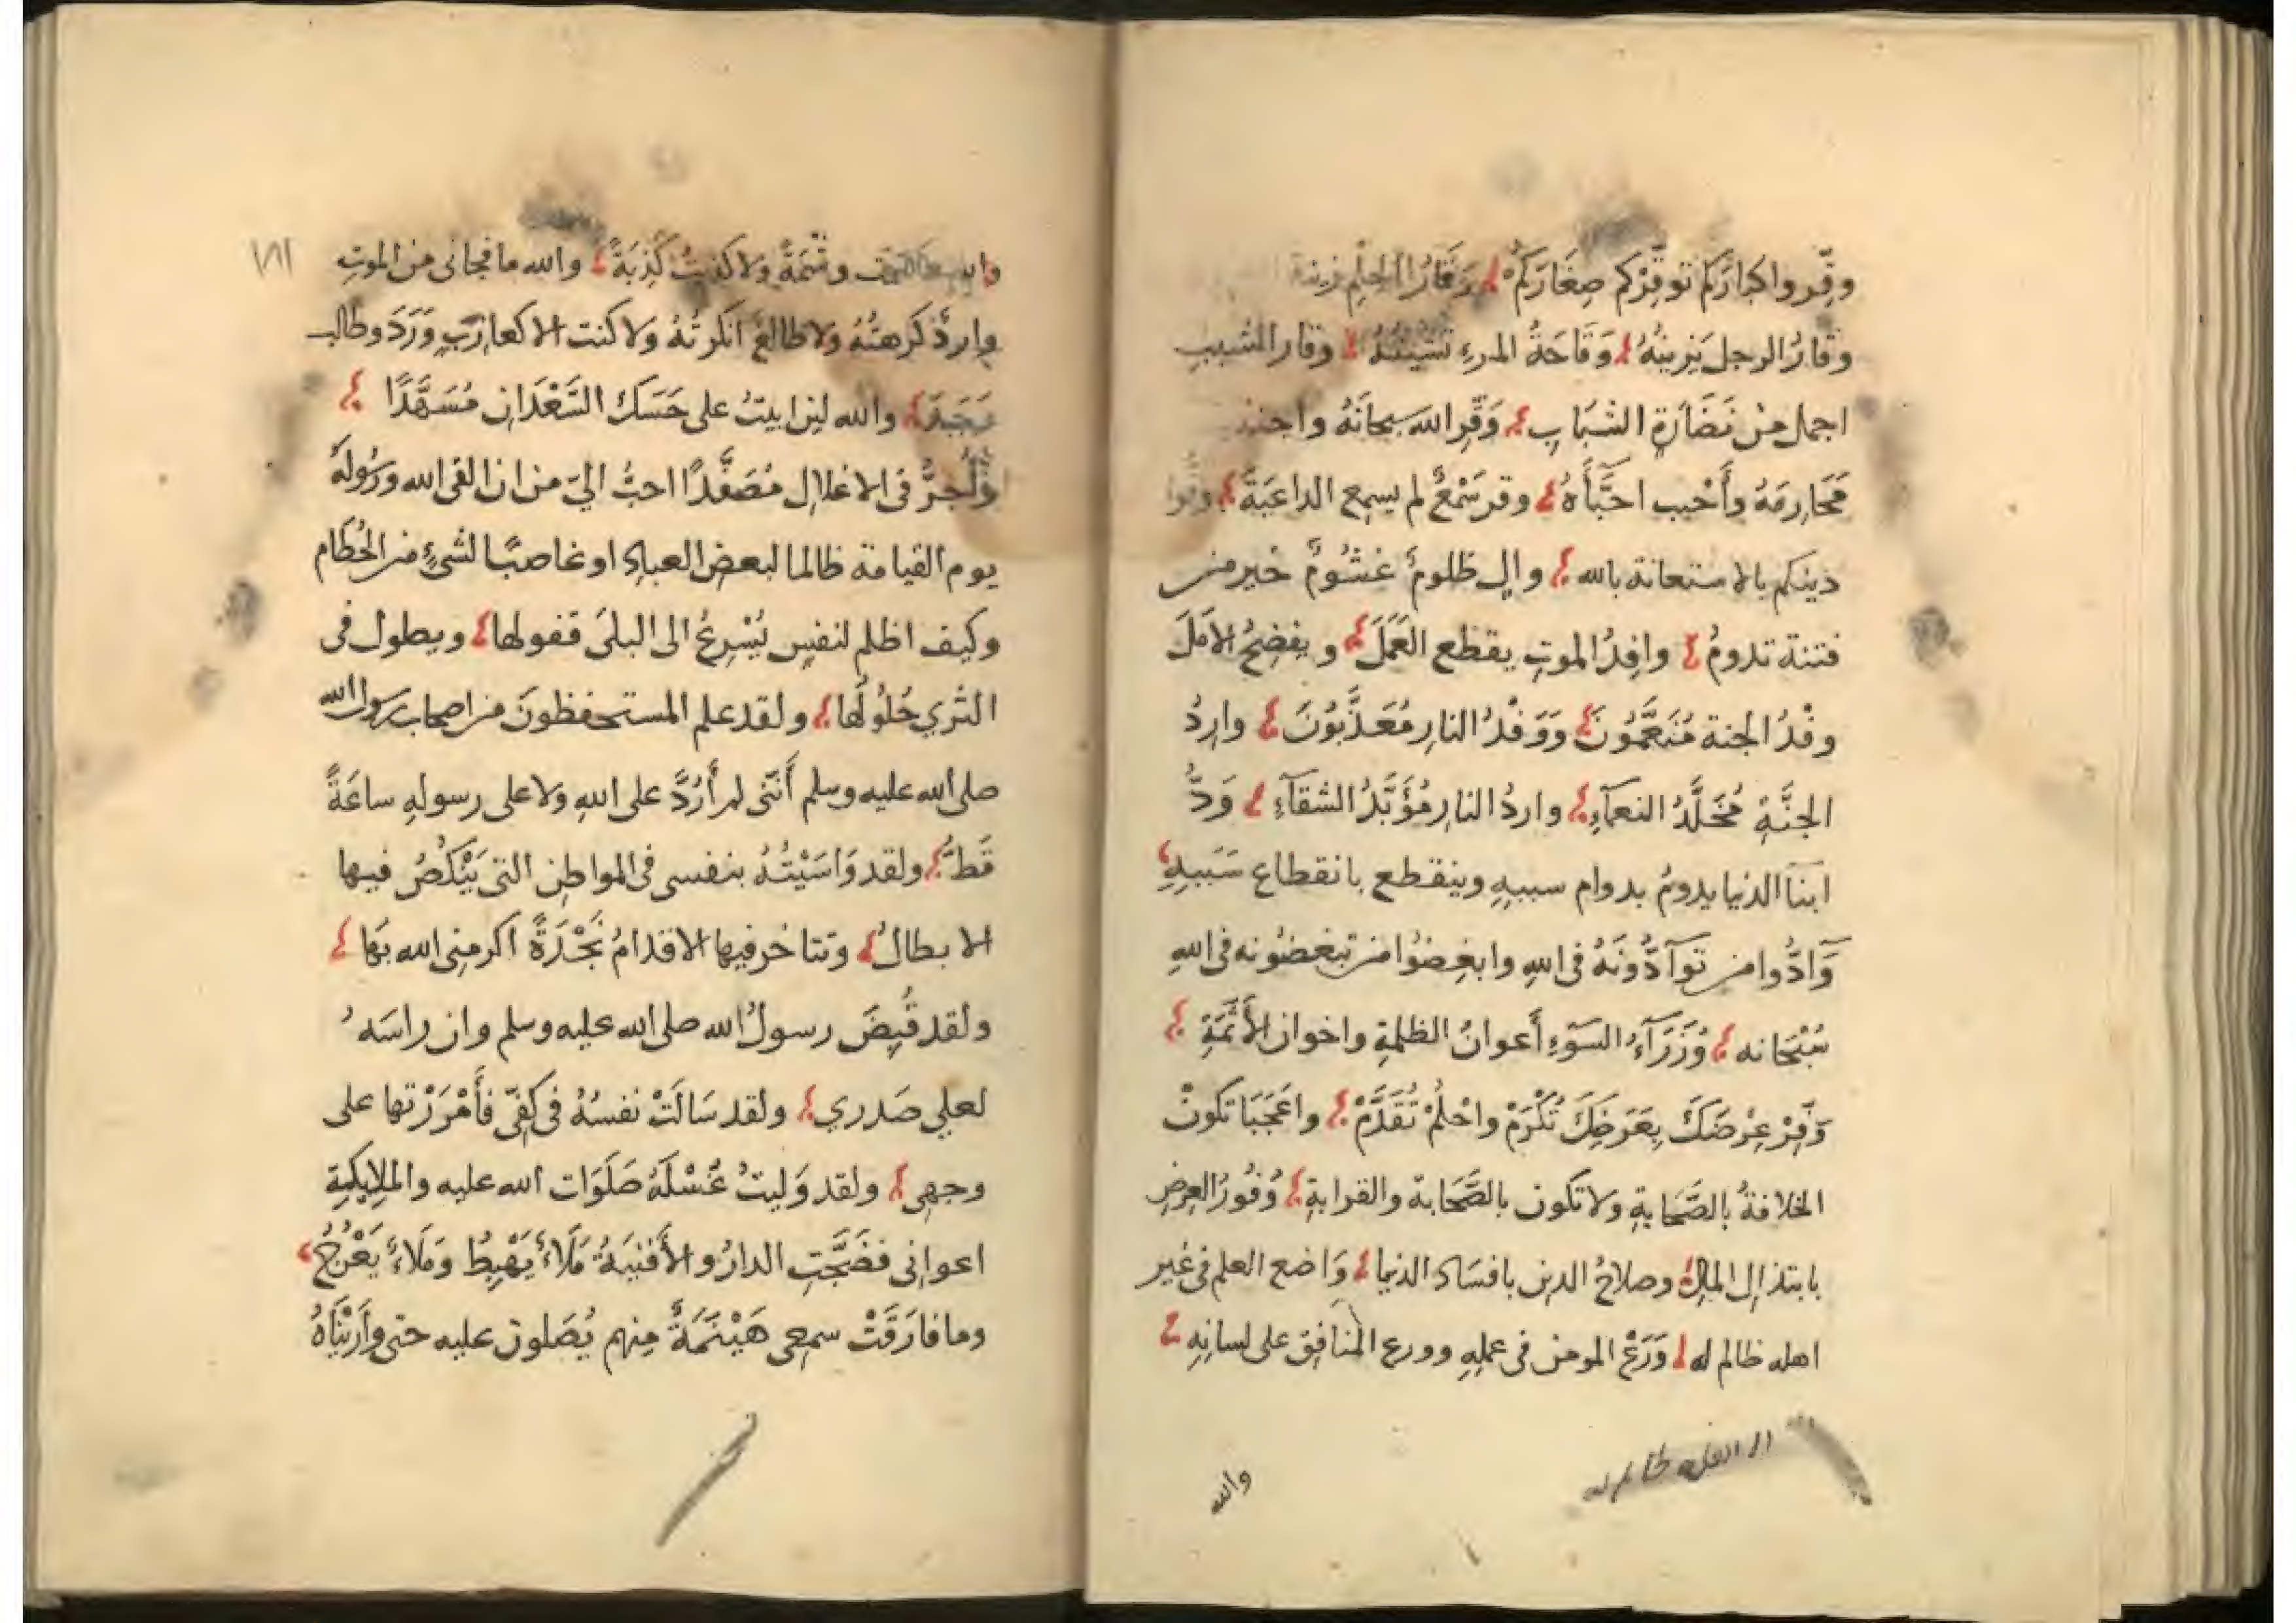 وقّروا كبارَكم توقِّرْكم صِغَارَكمْ وَقَارُ الحِلْمِ زينة
وقارُ الرجل يَزينهُ وَقَاحَةُ المرءِ تَشينُهُ وقار الشيب
اجمل منْ نَضَارَةِ الشبَابِ وَقِّرِ الله سبحانَهُ واجتنب
مَحَارِمَهُ وأَحْبب احبَّأَهُ وقر سَمْعٌ لم يسمع الداعيَةَ وقوا
دينكم بالاستعانة بالله والٍ ظلومٌ غشُومٌ خير من
فتنة تدومُ وافِدُ الموتِ يقطع العَمَلَ ويفضِحُ الأمَلَ
وفْدُ الجنة مُنَعَّمُونَ وَوَفْدُ النارِ مُعَذَّبُوْنَ وارِدُ
الجنَّةِ مُخَلَّدُ النعمآءِ واردُ النارِ مُؤَبَّدُ الشقآءِ وَدُّ
ابنآ الدنيا يدومُ بدوام سببهِ وينقطع بانقطاع سَبَبهِ
وَآدُّوا من توآدُّونَهُ فى اللهِ وابغِضوُا من تبغضونه فى اللهِ
سُبْحَانه وُزَرَآءُ السَوءِ أَعوانُ الظلمةِ واخوان الأَثَمَةِ
وَفِّرْ عِرْضَكَ بِعَرَضِكَ تُكْرَمْ واحْلُمْ تُقَدَّمْ واعَجَبَا تكونُ
الخلافةُ بالصَّحَابةِ ولا تكون بالصَّحَابة والقرابةِ وُفُورُ العِرضِ
بابتذالِ المالِ وصلاحُ الدين بافسَادِ الدنيا وَاضع العلم فى غير
اهله ظالم له وَرَعُ المومن فى عملهِ وورع المنافِق على لسانِهِ
والله
١٨١
وشْمَةً ولا كذبتُ كَذِبَةً والله ما فجانى من الموتِ
واردٌ كَرهتُهُ ولا طالعٌ انكرتُهُ ولا كنت الا كعازبٍ وَرَدَ وطالب
وَجَدَ والله لئن ابيتُ على حَسَك السَّعْدَانِ مُسَهَّدًا
وَأُجرُّ فى الاغلالِ مُصَفَّدًا احبُّ اليّ من ان القى الله ورَسُولَهُ
يوم القيامة ظالما لبعض العبادِ او غاصبًا لشئٍ من الحُطام
وكيف اظلم لنفسٍ يُسْرِعُ الى البلَى قفولها ويطول فى
الثري حُلُولُها ولقد علم المستحفظونَ من اصحاب رسول الله
صلى الله عليه وسلم أَنَّنى لم أَرُدَّ على اللهِ ولا على رسولهِ ساعَةً
قَطُّ ولقد وَاسَيْتُهُ بنفسى فى المواطِنِ التى يَنْكُصُ فيها
الابطالُ وتتاخر فيها الاقدامُ نَجْدَةً اكرمنِى الله بها
ولقد قُبِضَ رسولُ الله صلى الله عليه وسلم وان راسَهُ
لعلي صَدري ولقد سَالَتْ نفسُهُ فى كفّى فأَمْرَرْتها على
وجهى ولقد وَليتُ غُسْلَهُ صَلَوَات الله عليه والملايكةِ
اعوانى فضَجَّتِ الدارُ والأَفنيَةُ مَلَاءٌ يَهْبِطُ وَمَلَاءٌ يَعْرُجُ
وما فارَقَتْ سمعِى هَيْنَمَةٌ منهم يُصَلون عليه حتى وارَيْنَاهُ